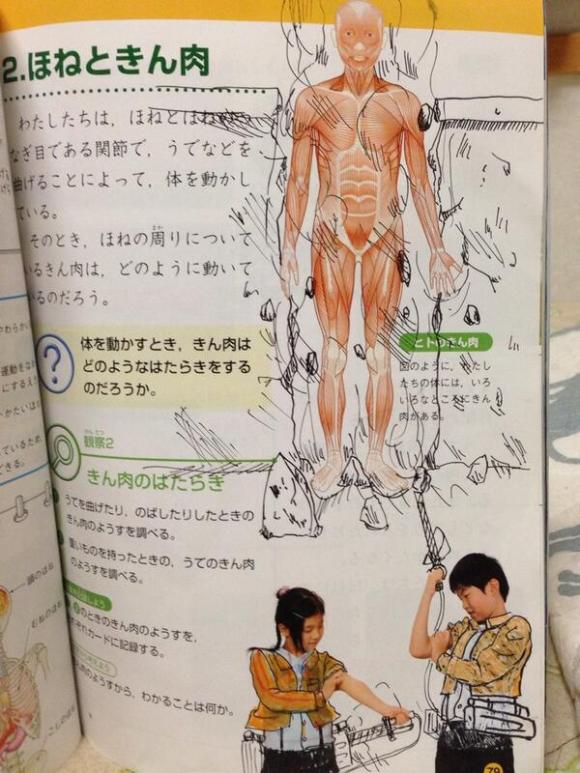 2.ほねときん肉
わたしたちは，ほねとほねの
なぎ目である関節で，うでなどを
曲げることによって，体を動かし
ている。
そのとき，ほねの周りについて
いるきん肉は，どのように動いて
いるのだろう。
?
体を動かすとき，きん肉は
どのようなはたらきをする
のだろうか。
ヒトのきん肉
図のように，わたし
たちの体には，いろ
いろなところにきん
肉がある。
かんさつ
観察2
きん肉のはたらき
うでを曲げたり，のばしたりしたときの
きん肉のようすを調べる。
重いものを持ったときの，うでのきん肉
のようすを調べる。
のときのきん肉のようすを，
ぞれカードに記録する。
肉のようすから，わかることは何か。
頭のほね
79